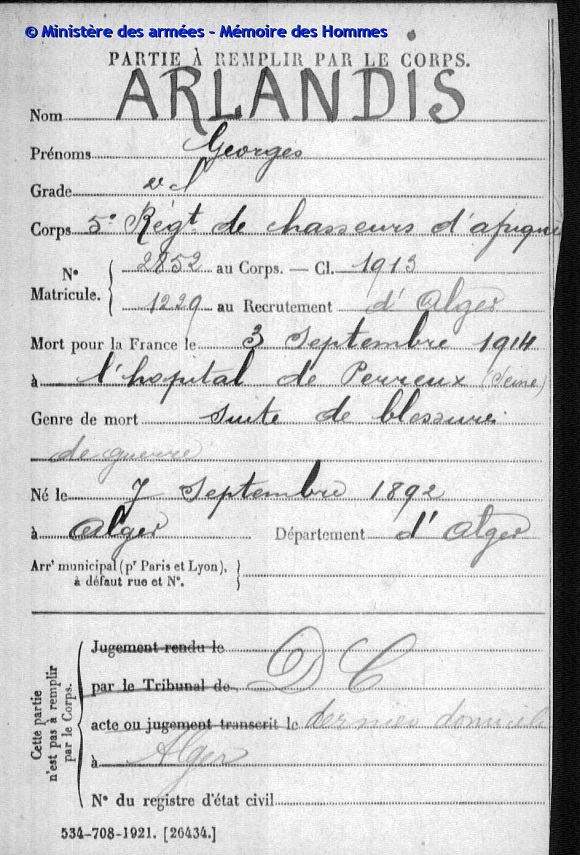 © Ministère des armées - Mémoire des Hommes
PARTIE À REMPLIR PAR LE CORPS.
Nom ARLANDIS
Prénoms Georges
Grade
Corps 5e Régt. de chasseurs d'afrique
N° Matricule. 2852 au Corps. — Cl. 1913
1229 au Recrutement d'Alger
Mort pour la France le 3 Septembre 1914
à l'hopital de Perreux (Seine)
Genre de mort suite de blessures
de guerre
Né le 7 Septembre 1892
à Alger Département d'Alger
Arrt municipal (pr Paris et Lyon), à défaut rue et N°.
Cette partie n'est pas à remplir par le Corps.
Jugement rendu le D C
par le Tribunal de
acte ou jugement transcrit le dernier domicile
à Alger
N° du registre d'état civil
534-708-1921. [26434.]